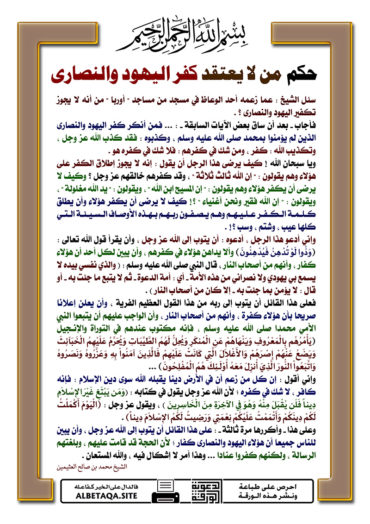 بسم الله الرحمن الرحيم
حكم من لا يعتقد كفر اليهود والنصارى
سئل الشيخ : عما زعمه أحد الوعاظ في مسجد من مساجد - أوربا - من أنه لا يجوز
تكفير اليهود والنصارى ؟ .
فأجاب ـ بعد أن ساق بعض الآيات السابقة ـ : ... فمن أنكر كفر اليهود والنصارى
الذين لم يؤمنوا بمحمد صلى الله عليه وسلم ، وكذبوه ؛ فقد كذب الله عز وجل ،
وتكذيب الله : كفر . ومن شك في كفرهم : فلا شك في كفره هو .
ويا سبحان الله ! كيف يرضى هذا الرجل أن يقول : إنه لا يجوز إطلاق الكفر على
هؤلاء وهم يقولون : - إن الله ثالث ثلاثة - ، وقد كفرهم خالقهم عز وجل ؟ وكيف لا
يرضى أن يكفر هؤلاء وهم يقولون : - إن المسيح ابن الله - ، ويقولون : - يد الله مغلولة - ،
ويقولون : - إن الله فقير ونحن أغنياء - ؟! كيف لا يرضى أن يكفر هؤلاء وأن يطلق
كلمة الكفر عليهم وهم يصفون ربهم بهذه الأوصاف السيئة التي
كلها عيب ، وشتم ، وسب ؟! .
وإني أدعو هذا الرجل ، أدعوه : أن يتوب إلى الله عز وجل ، وأن يقرأ قول الله تعالى :
(وَدُّوا لَوْ تُدْهِنُ فَيُدْهِنُونَ) وألا يداهن هؤلاء في كفرهم ، وأن يبين لكل أحد أن هؤلاء
كفار ، وأنهم من أصحاب النار ، قال النبي صلى الله عليه وسلم : ( والذي نفسي بيده لا
يسمع بي يهودي ولا نصراني من هذه الأمة ـ أي : أمة الدعوة ـ ثم لا يتبع ما جئت به ـ أو
قال : لا يؤمن بما جئت به ـ إلا كان من أصحاب النار ) .
فعلى هذا القائل أن يتوب إلى ربه من هذا القول العظيم الفرية ، وأن يعلن إعلانا
صريحا بأن هؤلاء كفرة ، وأنهم من أصحاب النار ، وأن الواجب عليهم أن يتبعوا النبي
الأمي محمدا صلى الله عليه وسلم ، فإنه مكتوب عندهم في التوراة والإنجيل
(يَأْمُرُهُم بِالْمَعْرُوفِ وَيَنْهَاهُمْ عَنِ الْمُنكَرِ وَيُحِلُّ لَهُمُ الطَّيِّبَاتِ وَيُحَرِّمُ عَلَيْهِمُ الْخَبَائِثَ
وَيَضَعُ عَنْهُمْ إِصْرَهُمْ وَالأَغْلالَ الَّتِي كَانَتْ عَلَيْهِمْ فَالَّذِينَ آمَنُواْ بِهِ وَعَزَّرُوهُ وَنَصَرُوهُ
وَاتَّبَعُوا النُّورَ الَّذِي أُنزِلَ مَعَهُ أُوْلَئِكَ هُمُ الْمُفْلِحُونَ) ...
وإني أقول : إن كل من زعم أن في الأرض دينا يقبله الله سوى دين الإسلام : فإنه
كافر ، لا شك في كفره ؛ لأن الله عز وجل يقول في كتابه : (وَمَن يَبْتَغِ غَيْرَ الإِسْلامِ
دِيناً فَلَن يُقْبَلَ مِنْهُ وَهُوَ فِي الآخِرَةِ مِنَ الْخَاسِرِينَ) ، ويقول عز وجل : (الْيَوْمَ أَكْمَلْتُ
لَكُمْ دِينَكُمْ وَأَتْمَمْتُ عَلَيْكُمْ نِعْمَتِي وَرَضِيتُ لَكُمُ الإِسْلامَ دِيناً) .
وعلى هذا ـ وأكررها مرة ثالثة ـ : على هذا القائل أن يتوب إلى الله عز وجل ، وأن يبين
للناس جميعا أن هؤلاء اليهود والنصارى كفار ؛ لأن الحجة قد قامت عليهم ، وبلغتهم
الرسالة ، ولكنهم كفروا عنادا ... وهذا أمر لا إشكال فيه ، والله المستعان .
الشيخ محمد بن صالح العثيمين
احرص على طباعة
ونشر هذه الورقة
الدعوية
الورقة
فالدال على الخير كفاعله
ALBETAQA.SITE